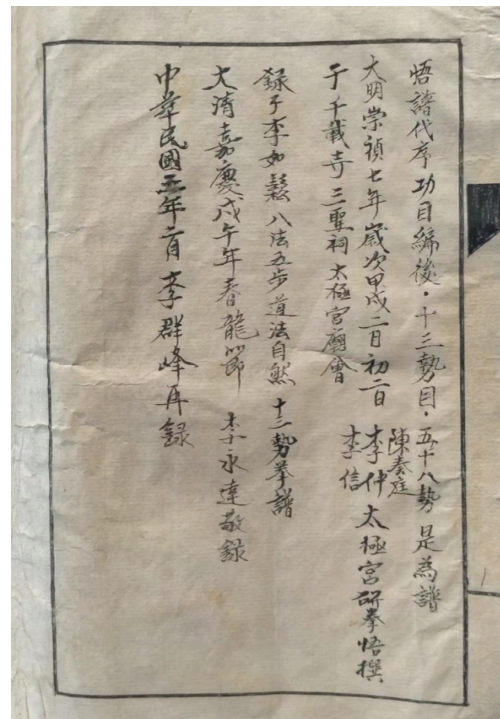 悟譜代序功目編後·十三勢目·五十八勢 是為譜
大明崇禎七年歲次甲戌二月初二日
陳奏庭
李仲 太極宮研拳悟撰
李信
于千載寺三聖祠太極宮廟會
錄于李如鬆八法五步道法自然 十三勢拳譜
大清嘉慶戊午年春龍節 李永達敬錄
中華民國五年二月 李群峰再錄